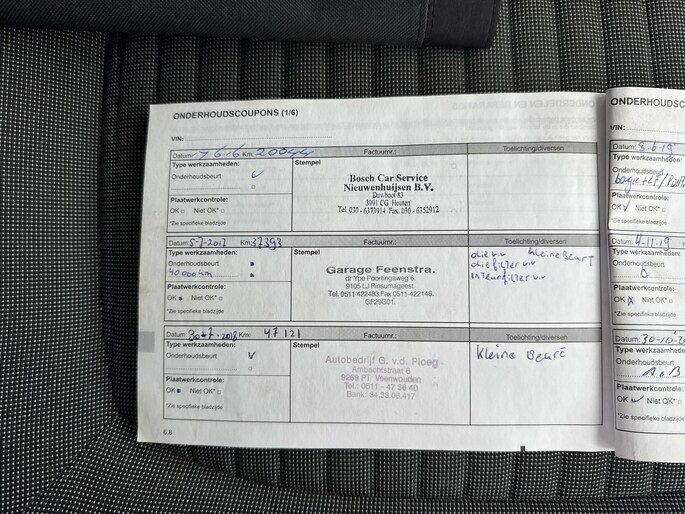 ONDERHOUDSCOUPONS (1/6)
VIN:
Datum: 7-6-6 Km: 20044 Factuurnr.: Toelichting/diversen
Type werkzaamheden: Stempel
Onderhoudsbeurt
Bosch Car Service
Nieuwenhuijsen B.V.
Duwboot 83
3991 CG Houten
Tel. 030 - 6373914 Fax. 030 - 6352912
Plaatwerkcontrole:
OK Niet OK*
*Zie specifieke bladzijde
Datum: 5-7-2017 Km: 37393 Factuurnr.: Toelichting/diversen
Type werkzaamheden: Stempel
Onderhoudsbeurt
40.000 km
Garage Feenstra.
dr Ype Poortingaweg 6.
9105 LJ Rinsumageest.
Tel. 0511-422483.Fax.0511-422146.
GF29G01.
olie v.v kleine beurt
oliefilter v.v
interurfilter v.v
Plaatwerkcontrole:
OK Niet OK*
*Zie specifieke bladzijde
Datum: 30-7-2018 Km: 47121 Factuurnr.: Toelichting/diversen
Type werkzaamheden: Stempel
Onderhoudsbeurt
Autobedrijf G. v.d. Ploeg
Ambachtstraat 6
9269 PT Veenwouden
Tel.: 0511 - 47 36 40
Bank: 34.33.06.417
Kleine Beurt
Plaatwerkcontrole:
OK Niet OK*
*Zie specifieke bladzijde
6.8
ONDERHOUDSC
VIN:
Datum: 3-6-19
Type werkzaamheden:
Onderhoudsbeurt
Plaatwerkcontrole:
OK Niet OK*
*Zie specifieke bladzij
Datum: 4-11-19
Type werkzaamhede
Onderhoudsbeurt
Plaatwerkcontrole:
OK Niet OK*
*Zie specifieke bladzij
Datum: 30-10-2
Type werkzaamhed
Onderhoudsbeurt
A.B
Plaatwerkcontrole:
OK Niet OK*
*Zie specifieke bladz